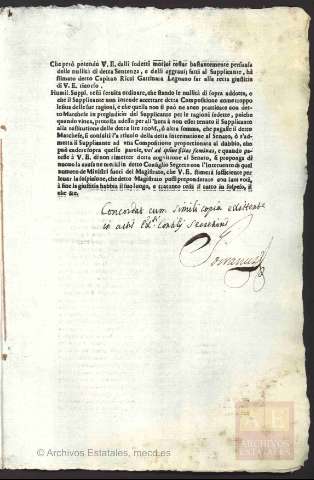 Che però potendo V. E. dalli sudetti motivi restar bastantemente persuasa
delle nullità di detta Sentenza, e delli aggravj fatti al Supplicante, hà
detto Capitan Rical Gattinara Legnano far alla retta giustitia
di V. E. ricorso.
Humil. Suppl. resti servita ordinare, che stando le nullità di sopra addotte, e
che il Supplicante non intende accettare detta Compositione come troppo
lesiva delle sue ragioni, e che quella non si può ne anco pratticare con
detto Marchese in pregiudicio del Supplicante per le ragioni sudette, poiche
quando vinca, protesta adesso per all'hora à non esser tenuto il Supplicante
alla restitutione delle dette lire 200M., ò altra somma, che pagasse il detto
Marchese, si consulti l'à titulo della detta internatione al Senato, ò s'ad-
metta il Supplicante ad una Compositione proportionata al dubbio, che
può cadere sopra quelle parole, vel ad ipsius filias feminas, e quando pa-
resse à V. E. di non rimettere detta cognitione al Senato, si proponga di
nuovo la causa ne conli in detto Consiglio Segreto con l'intervento di quel
numero de Ministri fuori del Magistrato, che V. E. stimerà sufficiente per
levare la sospicione, che detto Magistrato possi preponderare con suoi voti,
à fine la giustitia habbia il suo luogo, e trattanto resti il tutto in sospeso, il
che &c.
Concordat cum simili copia existente
in actis
© Archivos Estatales, mecd.es
ARCHIVOS
ESTATALES